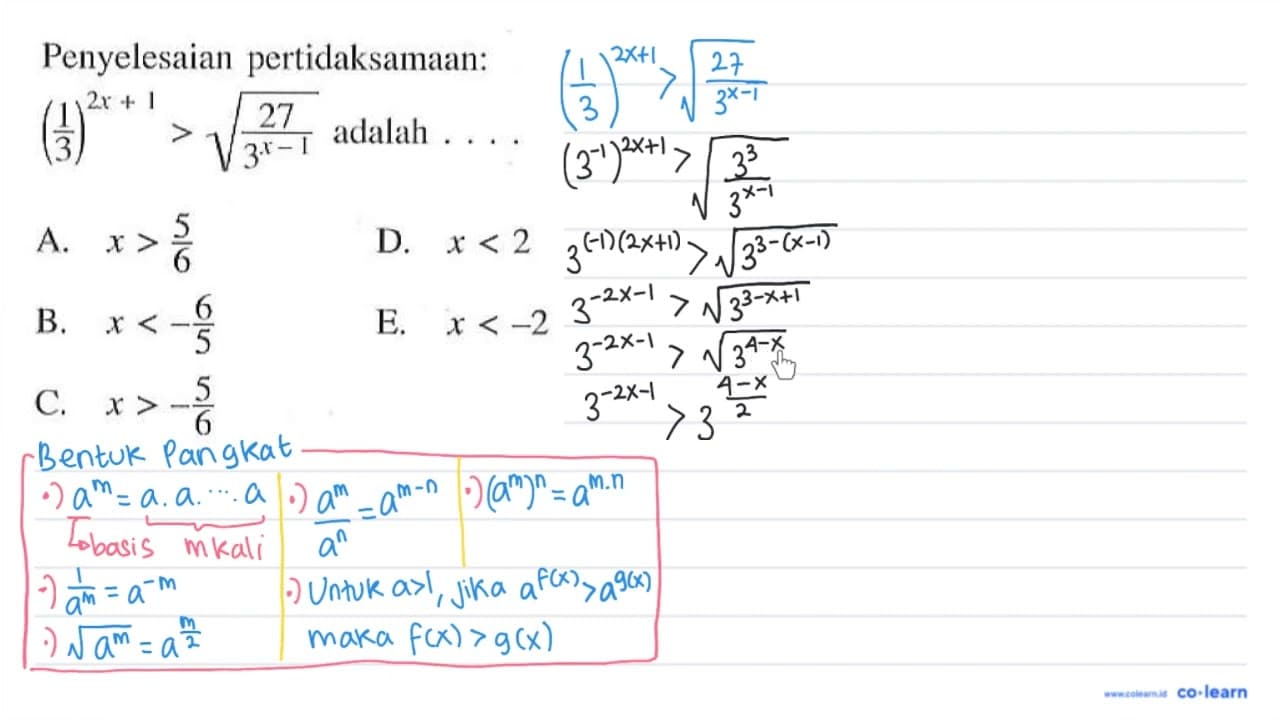 Penyelesaian pertidaksamaan:
(1/3)^(2x + 1) > √(27/3^(x – 1)) adalah . . . .
A. x > 5/6
D. x < 2
B. x < –6/5
E. x < –2
C. x > –5/6
(1/3)^(2x+1) > √(27/3^(x-1))
(3^-1)^(2x+1) > √(3^3/3^(x-1))
3^((-1)(2x+1)) > √(3^(3-(x-1)))
3^(-2x-1) > √(3^(3-x+1))
3^(-2x-1) > √(3^(4-x))
3^(-2x-1) > 3^((4-x)/2)
Bentuk Pangkat
•) a^m = a. a. ... . a
basis m kali
•) a^m/a^n = a^(m-n)
•) (a^m)^n = a^(m.n)
•) 1/a^m = a^-m
•) √(a^m) = a^(m/2)
•) Untuk a>1, jika a^f(x) > a^g(x)
maka f(x) > g(x)
www.colearn.id co•learn